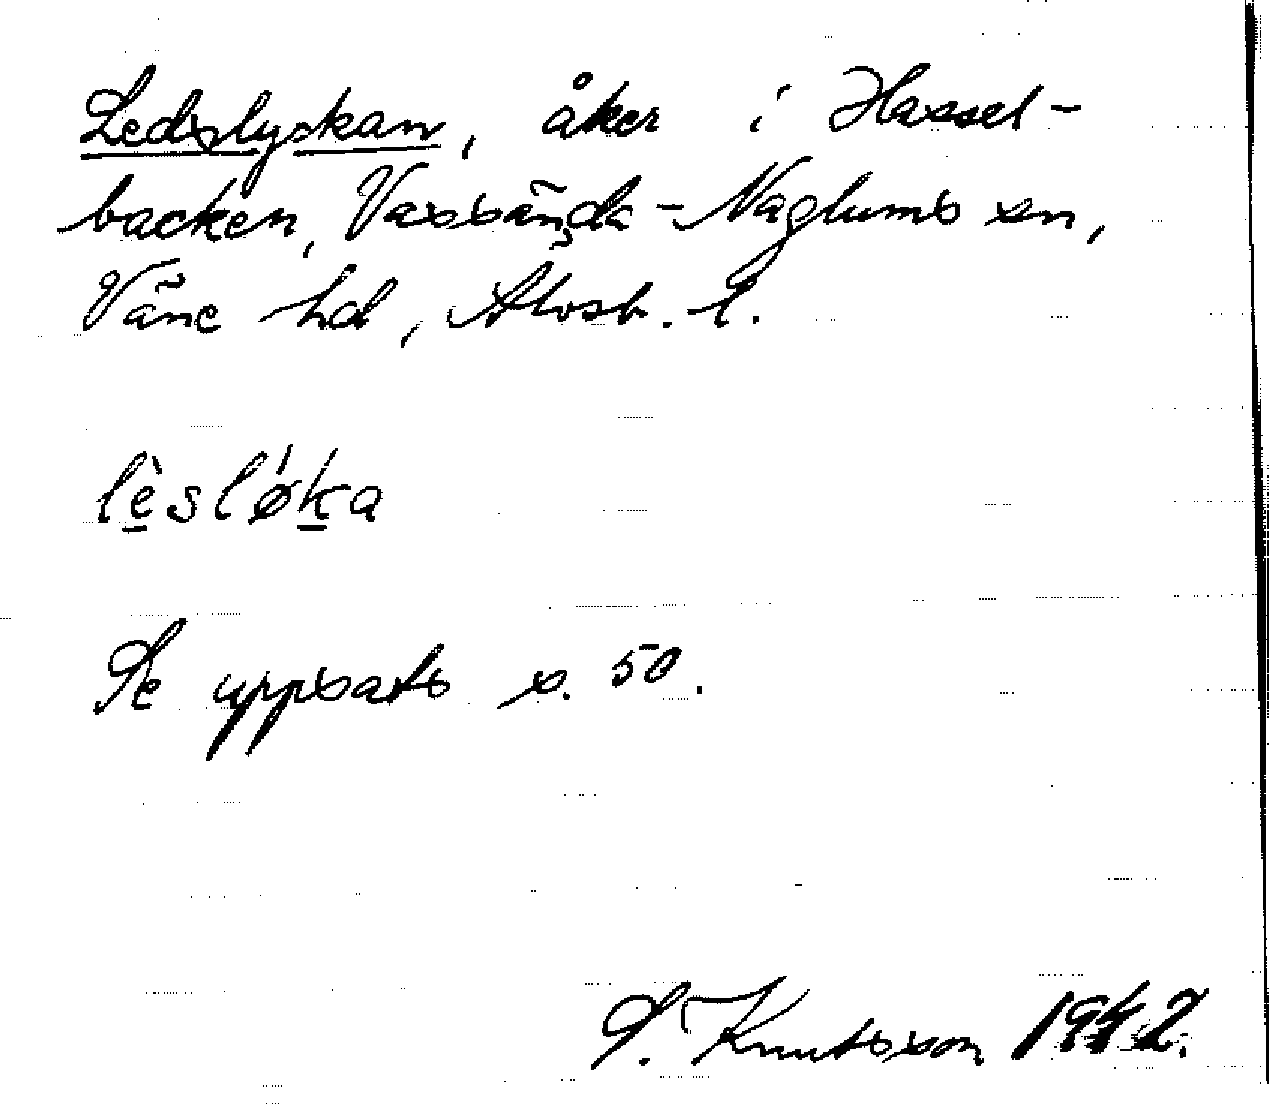 Ledslyckan, åker i Hassel-
backen, Vassända-Naglums sn,
Väne hd, Älvsb. l.
lèslǿka
Se uppsats s. 50.
S. Knutsson 1942.